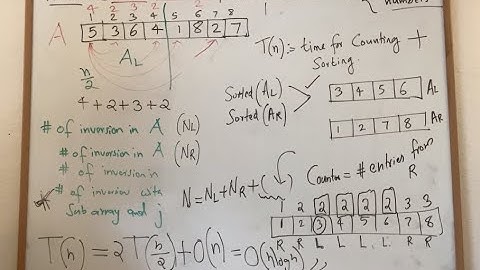 numbers
1 2 3 4 5 6 7 8
A 5 3 6 4 1 8 2 7
A_L
n/2
4+2+3+2
T(n):= time for Counting +
Sorting.
Sorted (A_L)
Sorted (A_R)
3 4 5 6 A_L
1 2 7 8 A_R
# of inversion in A (N_L)
# of inversion in A (N_R)
# of inversion in
# of inversion with
Sub array and j
N=N_L+N_R+(
Counter = # entries from
R
2 2 2 2 2 3 3
1 2 3 4 5 6 7 8
R R L L L L R R
T(n)=2T(n/2)+O(n)=O(n log n)